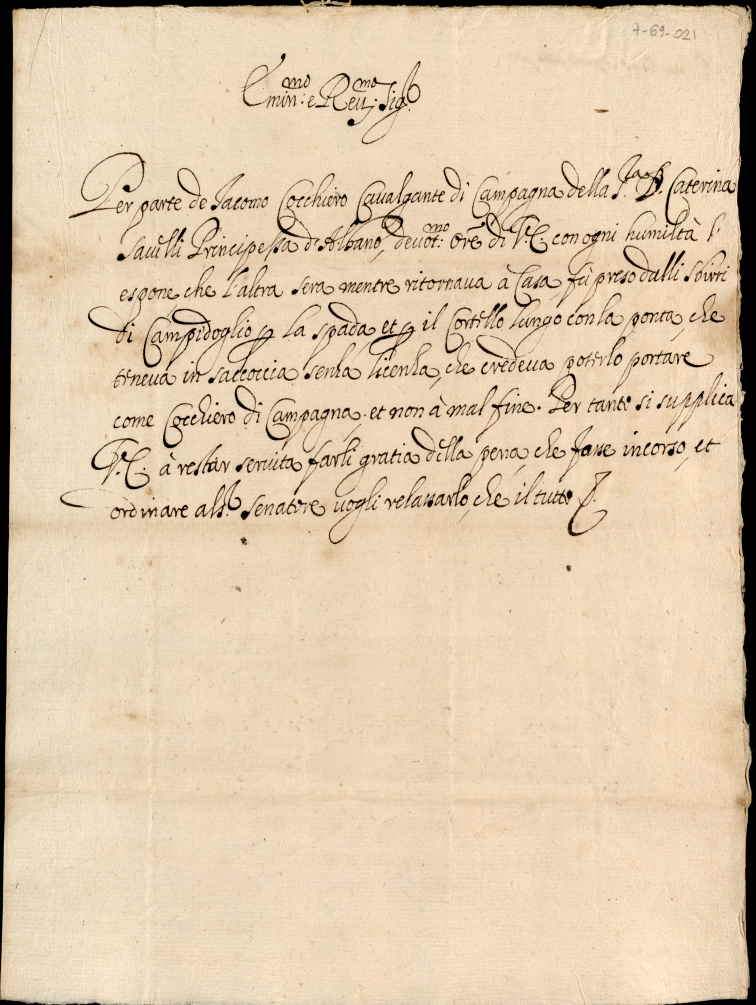 7-69-021
Emin:mo e Reu:mo Sig.r
Per parte de Iacomo Cocchiero Caualgante di Campagna della S.ra D. Caterina
Sauelli Principessa d'Albano, deuot:mo Ore di V.E. con ogni humiltà
espone che l'altra sera mentre ritornaua à Casa, fù preso dalli Sbirri
di Campidoglio p la spada et p il Cortello lungo con la ponta, che
teneua in saccoccia senza licenza, che credeua poterlo portare
come Cocchiero di Campagna, et non à mal fine. Per tanto si supplica
V.E. à restar seruita farli gratia della pena, che fosse incorso, et
ordinare al S.r Senatore uogli relassarlo, che il tutto